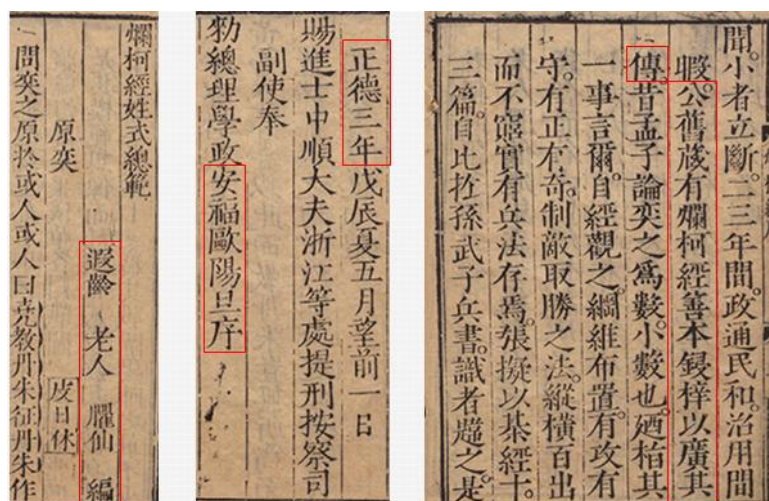 聞。小者立斷。二三年間。政通民和。治用間
暇。公舊蔵有爛柯經善本鋟梓以廣其
傳。昔孟子論奕之爲數。小數也。廼柏其
一事言爾。自經觀之。綱維布置。有攻有
守。有正有奇。制敵取勝之法。縱横百出
而不窮。實有兵法存焉。張擬以棊經十
三篇。自比於孫武子兵書。識者韙之。是
正德三年戊辰夏五月望前一日
賜進士中順大夫浙江等處提刑按察司
副使奉
勅總理學政安福歐陽旦序
爛柯經姓式總範
遐齡 老人 臞仙 編
原奕 皮日休
問奕之原於或人或人曰堯教丹朱征丹朱作